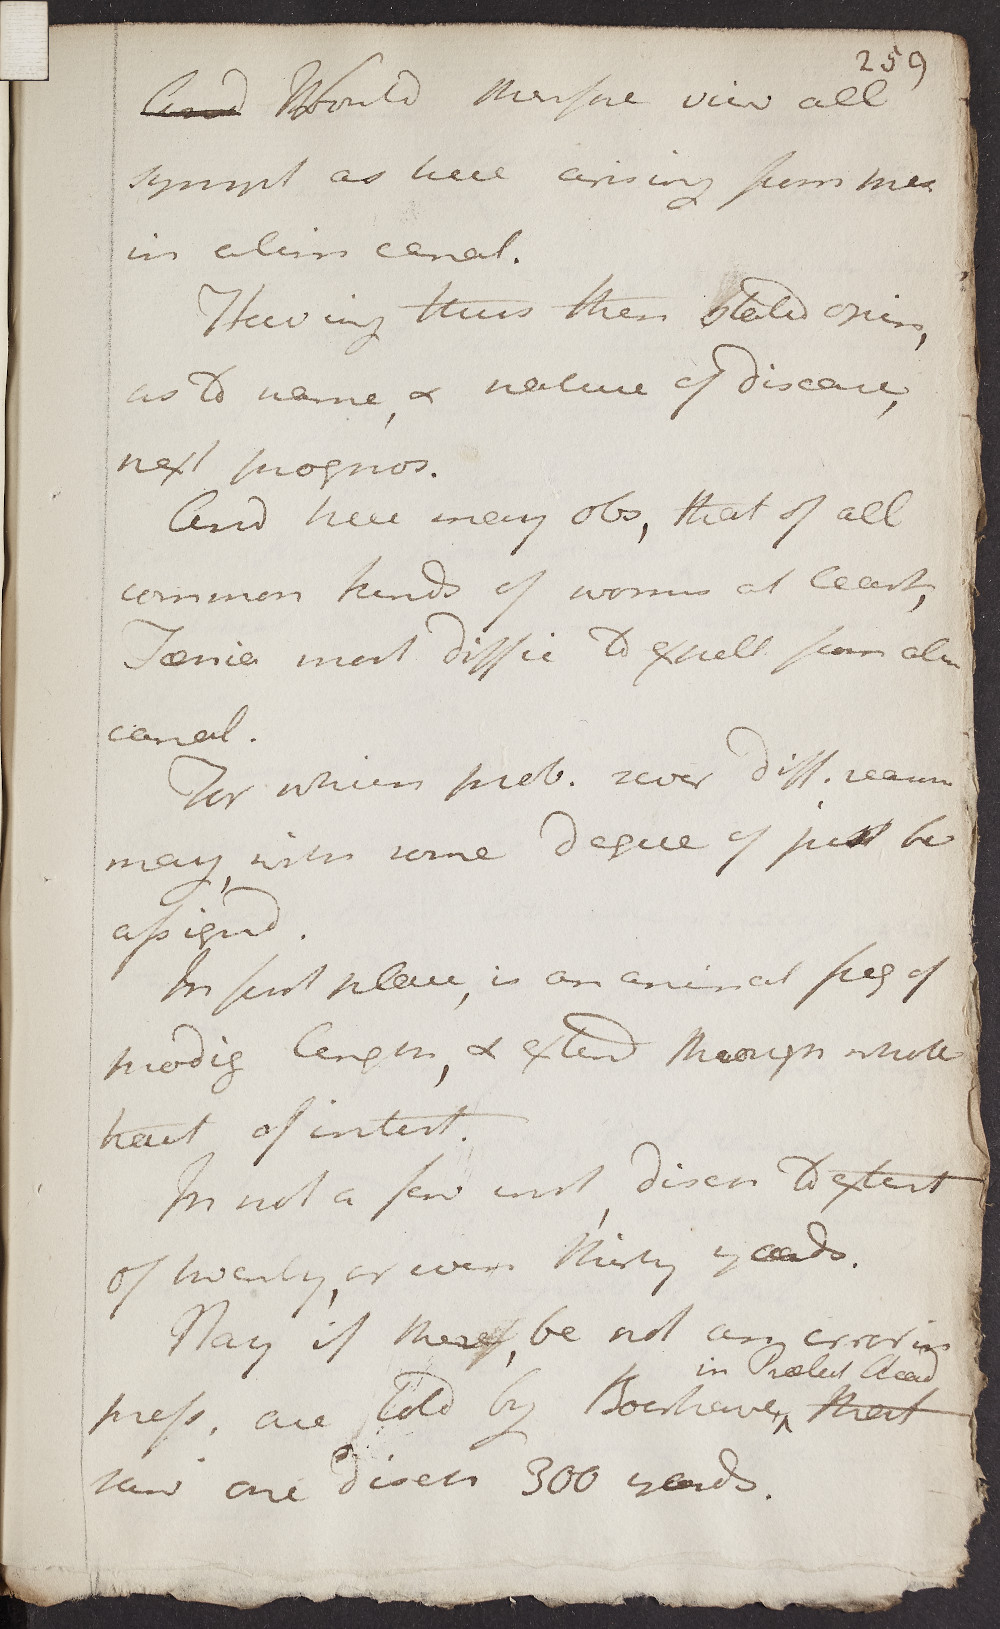 259
And Would therefore view all
sympt as here arising from
in alim canal.
Having thus then stated opin,
as to name, & nature of disease,
next prognos.
And here may obs, that of all
common kinds of worms at least,
Tænia most diffic to expell from alim
canal.
For which prob. sever diff. reason
may, with some degree of just be
assignd.
In first place, is an animal freq of
prodig length, & extend through whole
tract of intest.
In not a few inst, disch to extent
of twenty, or even thirty yards.
Nay if there, be not any error in
in Prælect Acad
press, are told by Boerhaave, that
saw one disch 300 yards.